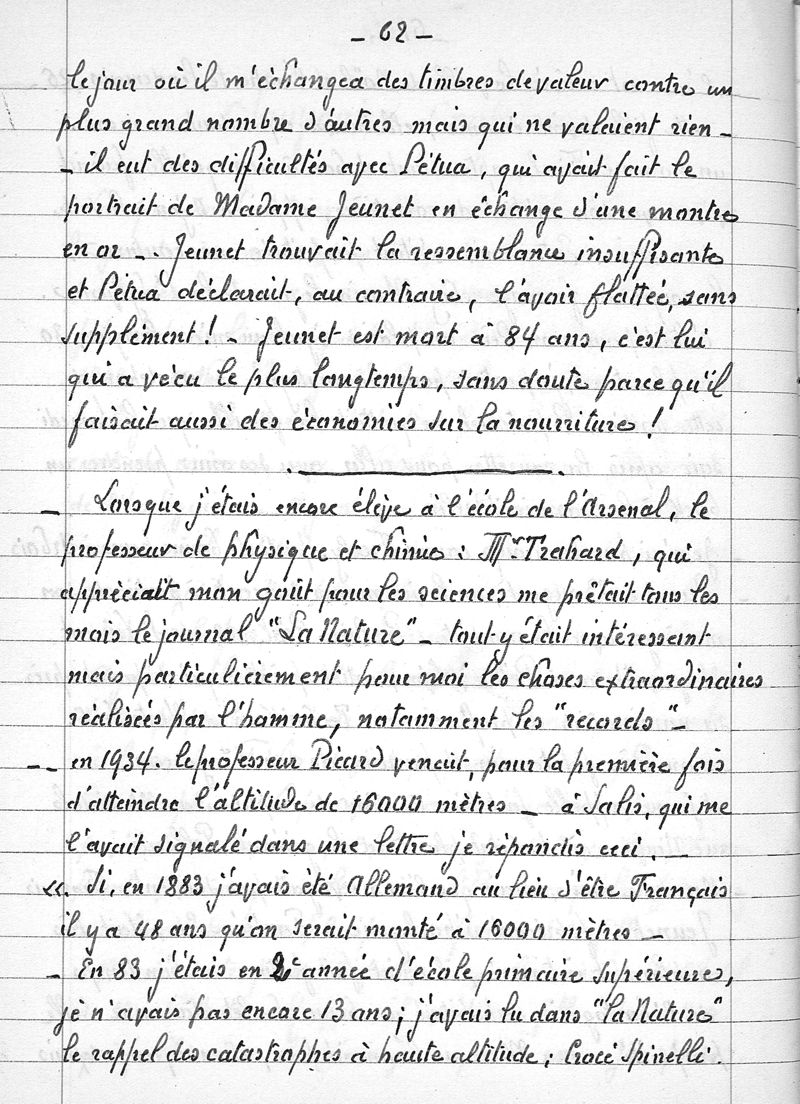 - 62 -
le jour où il m'échangea des timbres de valeur contre un
plus grand nombre d'autres mais qui ne valaient rien -
- il eut des difficultés avec Pétua, qui avait fait le
portrait de Madame Jeunet en échange d'une montre
en or -. Jeunet trouvait la ressemblance insuffisante
et Pétua déclarait, au contraire, l'avoir flattée, sans
supplément ! - Jeunet est mort à 84 ans, c'est lui
qui a vécu le plus longtemps, sans doute parce qu'il
faisait aussi des économies sur la nourriture !
- Lorsque j'étais encore élève à l'école de l'Arsenal, le
professeur de physique et chimie : Mr Trahard, qui
appréciait mon goût pour les sciences me prêtait tous les
mois le journal "La Nature" - tout y était intéressant
mais particulièrement pour moi les choses extraordinaires
réalisées par l'homme, notamment les "records" -
-- en 1934. le professeur Picard venait, pour la première fois
d'atteindre l'altitude de 16000 mètres - à Salis, qui me
l'avait signalé dans une lettre je répondis ceci. -
«. Si, en 1883 j'avais été Allemand au lieu d'être Français
il y a 48 ans qu'on serait monté à 16000 mètres -
- En 83 j'étais en 2e année d'école primaire supérieure,
je n'avais pas encore 13 ans ; j'avais lu dans "la Nature"
le rappel des catastrophes à haute altitude ; Crocé Spinelli.